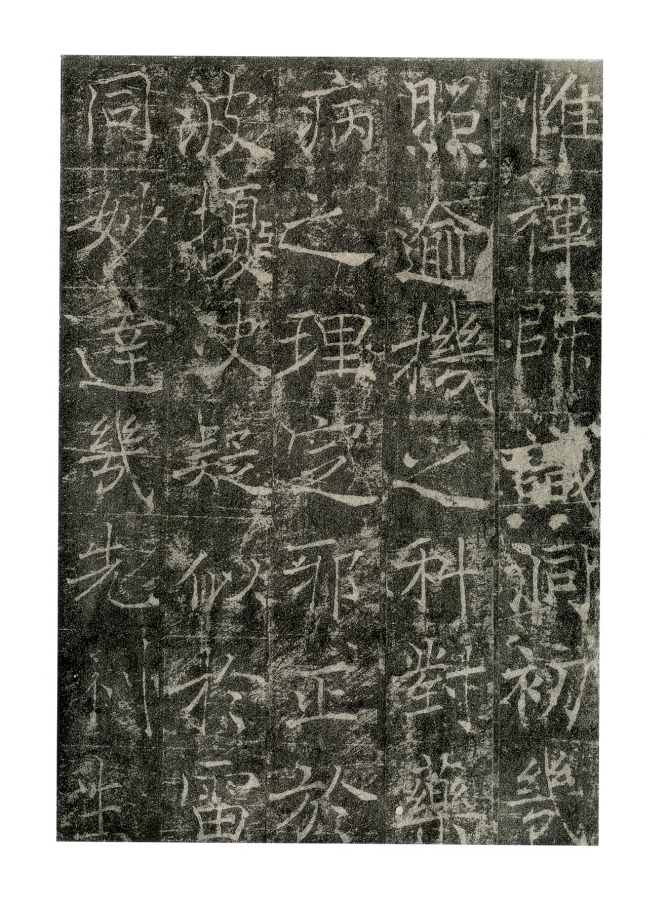 惟禪師識洞初幾
照逾機之科對藥
病之理定邪正於
波壞決疑似於雷
同妙達幾先利